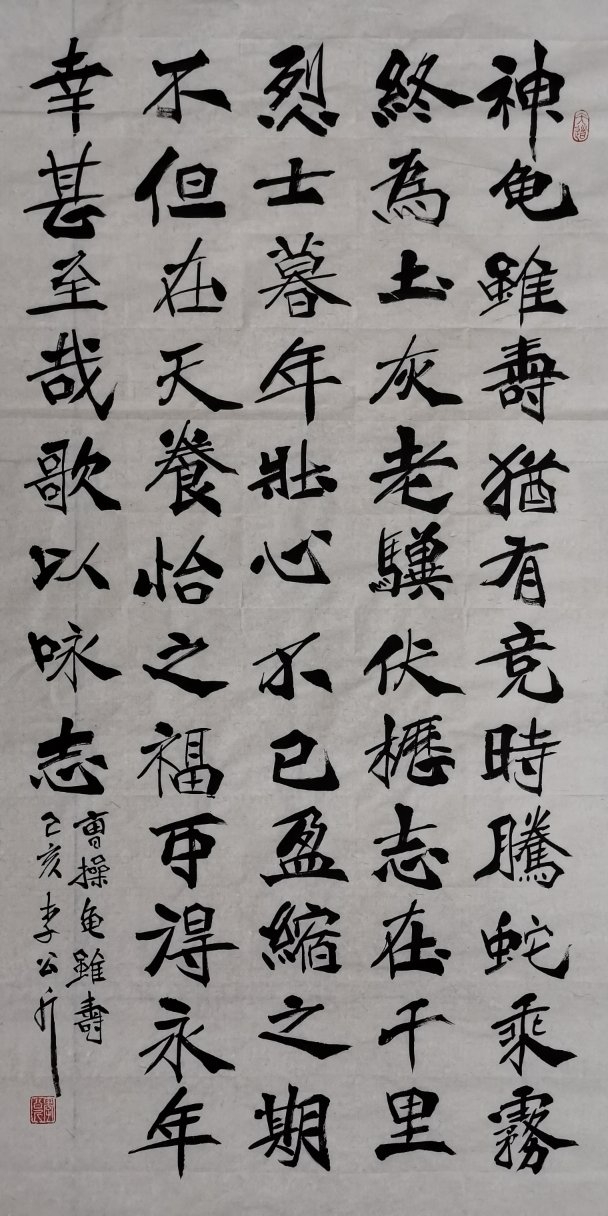 神龟雖壽猶有竞時騰蛇乘霧
終為土灰老驥伏櫪志在千里
烈士暮年壯心不已盈縮之期
不但在天養怡之福可得永年
幸甚至哉歌以咏志
曹操龟雖壽
己亥李公